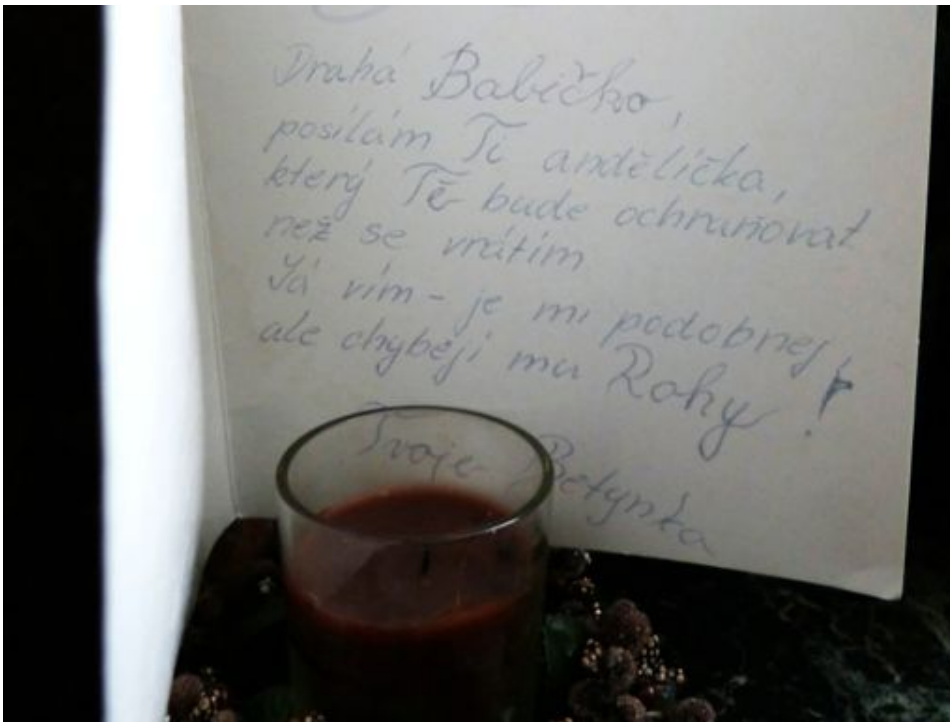 Drahá Babičko,
posílám Ti andělíčka,
který Tě bude ochraňovat
než se vrátím
Já vím - je mi podobnej,
ale chybějí mu Rohy!
Tvoje Betynka